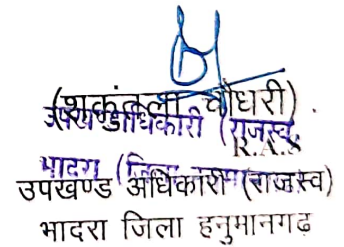 (शकुंतला चौधरी)
उपखण्डाधिकारी (राजस्व)
R.A.S
भादरा (जिला
उपखण्ड अधिकारी (राजस्व)
भादरा जिला हनुमानगढ़